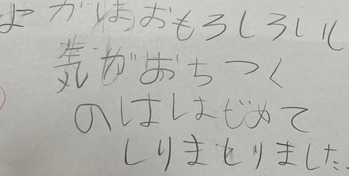 がおもしろしろいし
気がおちつく
のははじめて
しりまとりました。